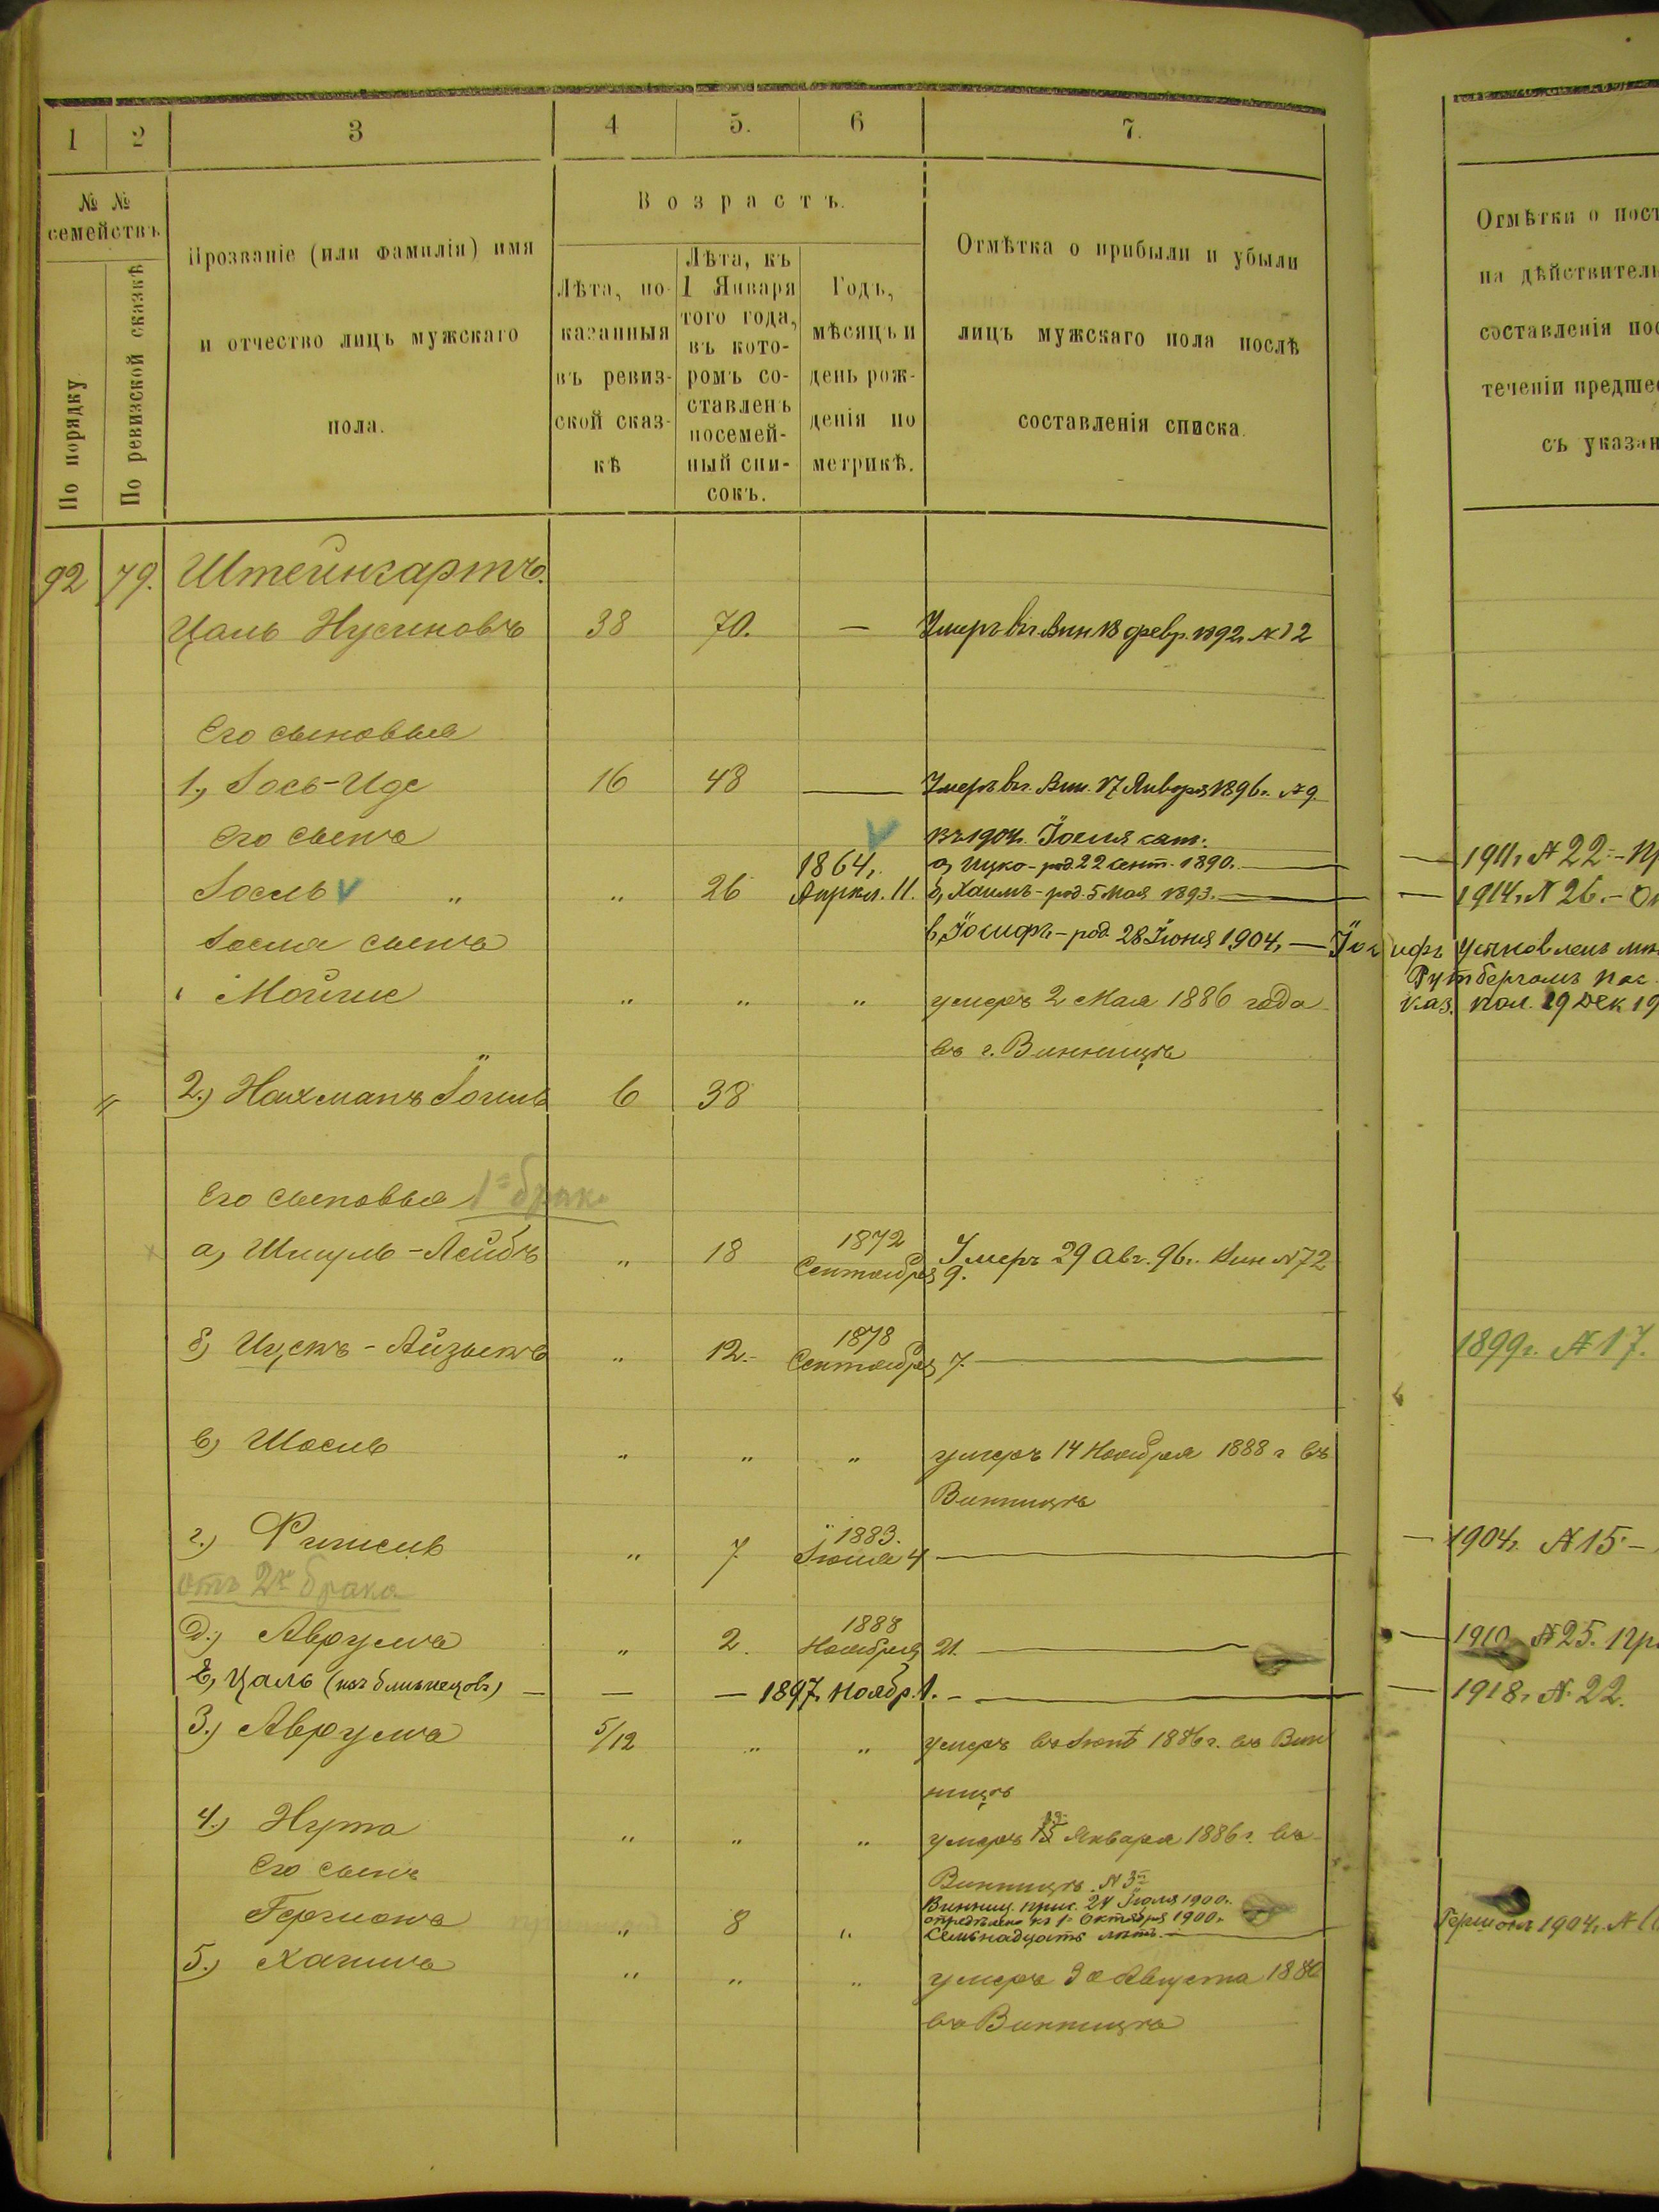 1 2 3 4 5. 6 7.
№ № семействъ
По порядку
По ревизской сказкѣ
Прозваніе (или фамилія) имя
и отчество лицъ мужскаго
пола.
Возрастъ.
Лѣта, по-
казанныя
въ ревиз-
ской сказ-
кѣ
Лѣта, къ
1 Января
того года,
въ кото-
ромъ со-
ставленъ
посемей-
ный спи-
сокъ.
Годъ,
мѣсяцъ и
день рож-
денія по
метрикѣ.
Отмѣтка о прибыли и убыли
лицъ мужскаго пола послѣ
составленія списка.
Отмѣтки о пост
на дѣйствител
составленія пос
теченіи предшес
съ указан
92 79. Штейнгартъ.
Цаль Нусиновъ 38 70. — Умеръ въ г. Вин 18 февр. 1892 г. № 12
Его сыновья
1., Іось-Иде 16 48 — Умеръ въ г. Вин. 17 Января 1896 г. № 9
Его сынъ
въ 1904 г. Іосиля сын:
а, Ицко - род. 22 сент. 1890. — 1911 г. № 22 - Пр
Іосель " " 26 1864 г. Апрѣл. 11. б, Хаимъ - род. 5 мая 1893. — 1914 г. № 26. -
Іосиля сынъ
в, Іосифъ - род. 28 Іюня 1904 г. — Іосифъ усыновленъ
Рутбергомъ
Мойше " " " умеръ 2 Мая 1886 года
въ г. Винницѣ
пол. 29 Дек 19
2.) Нахманъ Іойль 6 38
Его сыновья 1го брака
а, Шмуль-Лейбъ " 18 1872 Сентября 9. Умеръ 29 Авг. 96 г. Вин № 72
б) Ицекъ-Айзыкъ " 12.- 1878 Сентября 7. — 1899 г. № 17.
в) Шосиль " " " умеръ 14 Ноября 1888 г въ
Винницѣ
г.) Фишель " 7 1883. Іюня 4 — 1904 г. № 15 -
отъ 2го брака
д.) Аврумъ " 2. 1888 Ноября 21. — 1910 № 25. Пр
Е, Цаль (изъ близнецовъ) — — — 1897 г. Ноябр. 1. — 1918 г. № 22.
3.) Аврумъ 5/12 " " умеръ въ Іюнѣ 1886 г. въ Вин
ницѣ
4.) Нута " " " умеръ Января 1886 г. въ
Винницѣ № 3
Его сынъ
Гершонъ " 8 " Винниц. прис. 24 Іюля 1900 г.
опредѣлено къ 1 Октября 1900 г.
семьнадцать лѣтъ. — Гершонъ 1904 г. №
5.) Хаимъ " " " умеръ 30 Августа 1886
въ Винницѣ